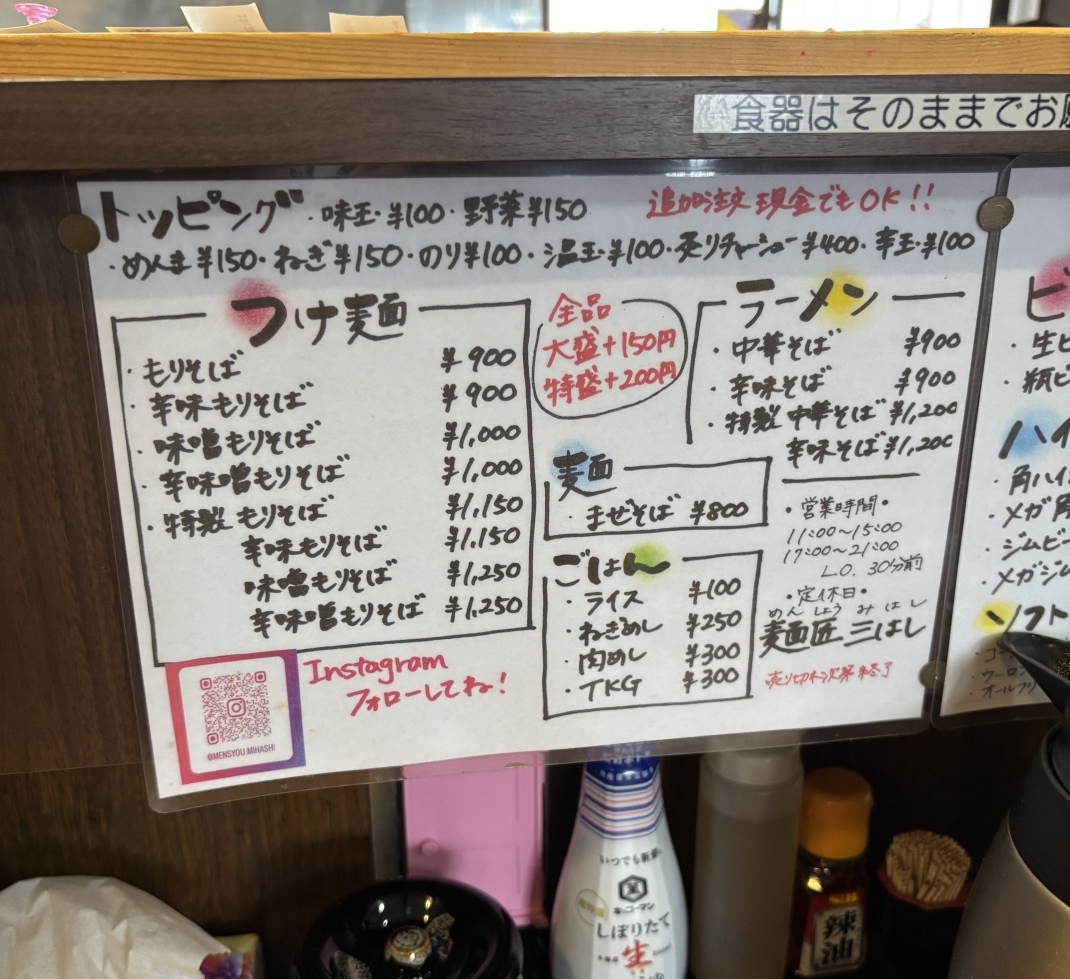 食器はそのままでお
トッピング ・味玉・¥100・野菜¥150 追加注文現金でもOK!!
・めんま¥150・ねぎ¥150・のり¥100・温玉・¥100・炙りチャーシュー¥400・辛玉・¥100
つけ麺
・もりそば ¥900
・辛味もりそば ¥900
・味噌もりそば ¥1,000
・辛味噌もりそば ¥1,000
・特製もりそば ¥1,150
辛味もりそば ¥1,150
味噌もりそば ¥1,250
辛味噌もりそば ¥1,250
全品
大盛+150円
特盛+200円
ラーメン
・中華そば ¥900
・辛味そば ¥900
・特製中華そば ¥1,200
辛味そば ¥1,200
麺
・まぜそば ¥800
ごはん
・ライス ¥100
・ねぎめし ¥250
・肉めし ¥300
・TKG ¥300
・営業時間・
11:00〜15:00
17:00〜21:00
L.O. 30分前
・定休日・
めんしょう みはし
麺匠 三はし
売り切れ次第終了
Instagram
フォローしてね!
@MENSYOU.MIHASHI
ビ
・生ビ
・瓶ビ
ハイ
・角ハイ
・メガ角
・ジムビー
・メガジム
ソフト
・コー
・ウーロン
・オールフリ
いつでも新鮮
キッコーマン
しぼりたて
生
S&B
辣油